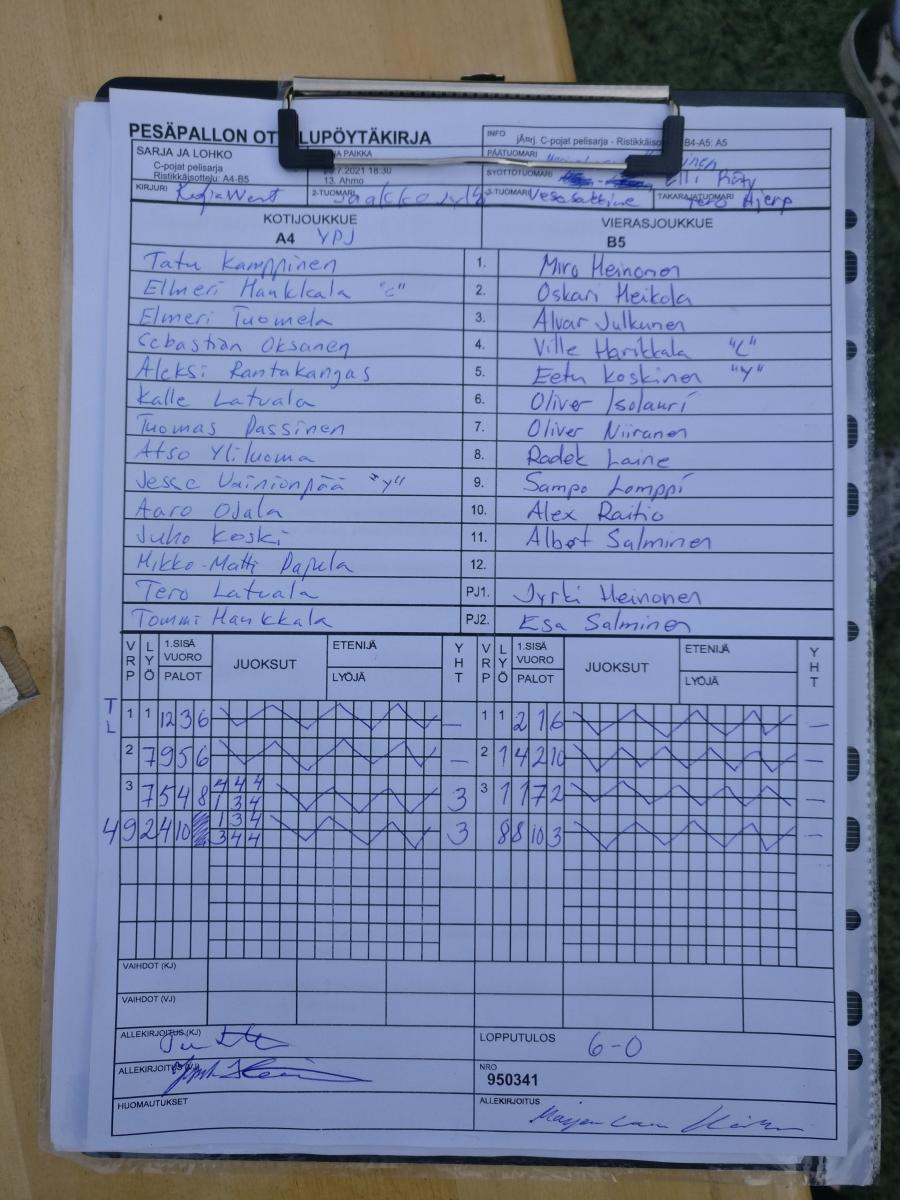 PESÄPALLON OT LUPÖYTÄKIRJA
INFO
jÄnrj. C-pojat pelisarja - Ristikkäiso B4-A5: A5
SARJA JA LOHKO
C-pojat pelisarja
Ristikkäisottelu: A4-B5
JA PAIKKA
.7.2021 18:30
13. Ahmo
PÄÄTUOMARI
SYÖTTÖTUOMARI Elli
KIRJURI
2-TUOMARI
3-TUOMARI
TAKARAJATUOMARI
KOTIJOUKKUE VIERASJOUKKUE
A4 YPJ B5
Tatu Kamppinen 1. Miro Heinonen
Elmeri Hankkala "C" 2. Oskari Heikola
Elmeri Tuomela 3. Alvar Julkunen
Sebastian Oksanen 4. Ville Harikkala "C"
Aleksi Rantakangas 5. Eetu Koskinen "Y"
Kalle Latvala 6. Oliver Isolauri
Tuomas Passinen 7. Oliver Niiranen
Atso Yliluoma 8. Radek Laine
Jesse Vainionpää "Y" 9. Sampo Lomppi
Aaro Ojala 10. Alex Raitio
Juho Koski 11. Albert Salminen
Mikko-Matti Papula 12.
Tero Latvala PJ1. Jyrki Heinonen
Tommi Hankkala PJ2. Esa Salminen
VRP LYÖ 1.SISÄ VUORO PALOT JUOKSUT ETENIJÄ LYÖJÄ YHT VRP LYÖ 1.SISÄ VUORO PALOT JUOKSUT ETENIJÄ LYÖJÄ YHT
TL
1 1 12 3 6 – 1 1 2 7 6 –
2 7 9 5 6 – 2 1 4 2 10 –
3 7 5 4 8 4 4 4 3 3 1 1 7 2 –
1 3 4
4 9 2 4 10 1 3 4 3 8 8 10 3 –
3 4 4
VAIHDOT (KJ)
VAIHDOT (VJ)
ALLEKIRJOITUS (KJ)
LOPPUTULOS 6-0
ALLEKIRJOITUS (VJ)
NRO
950341
HUOMAUTUKSET
ALLEKIRJOITUS